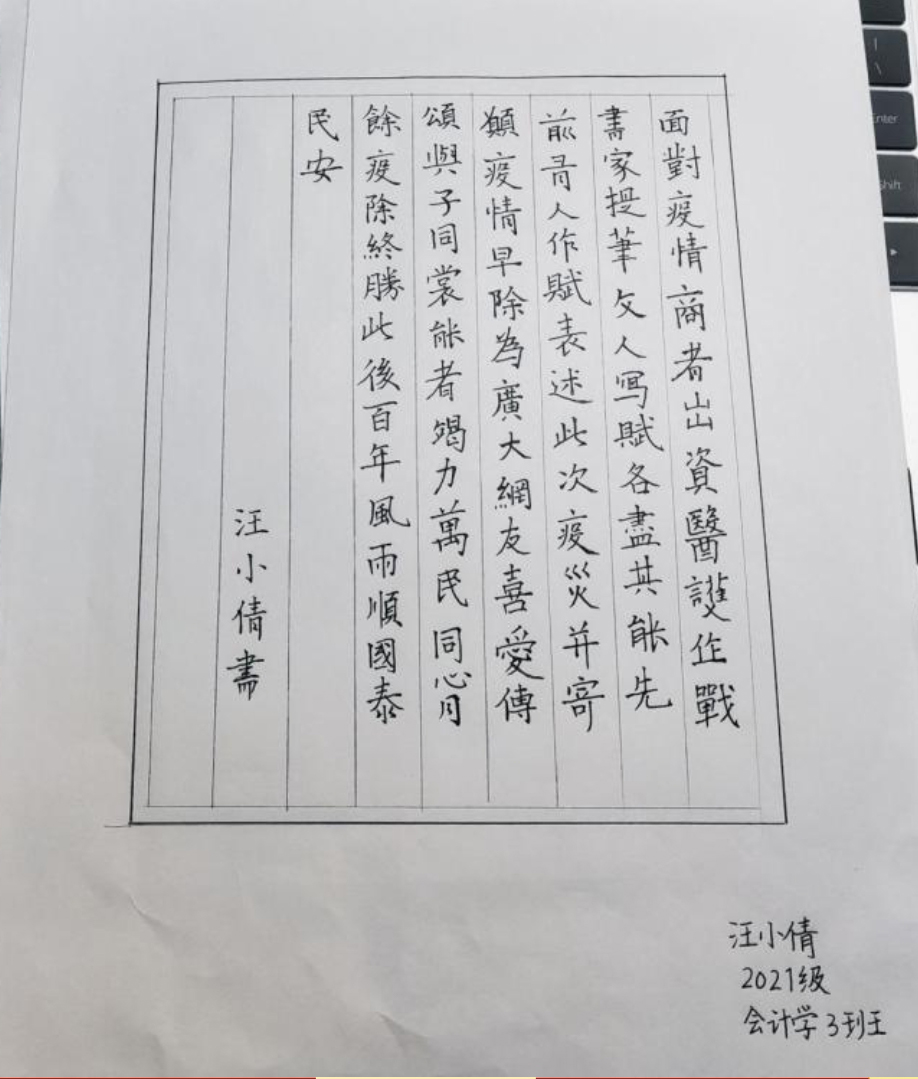 面對疫情商者出資醫護作戰
書家提筆文人寫賦各盡其能先
前有人作賦表述此次疫災并寄
願疫情早除為廣大網友喜愛傳
頌與子同裳能者竭力萬民同心
餘疫除終勝此後百年風雨順國泰
民安
汪小倩書
汪小倩
2021级
会计学3班